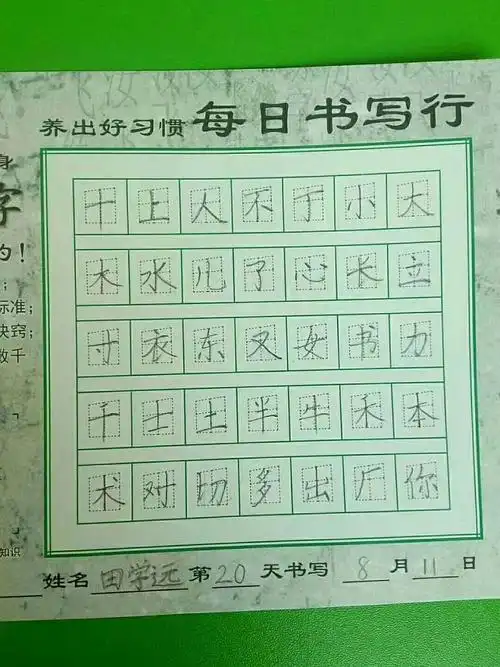 养出好习惯 每日书写行
十上人不丁小大
木水儿了心长立
寸衣东又女书力
干士土半牛禾本
术对切多出厂你
姓名 田学远 第 20 天书写 8 月 11 日
身
字
的！
；
标准；
诀窍；
数千
知识